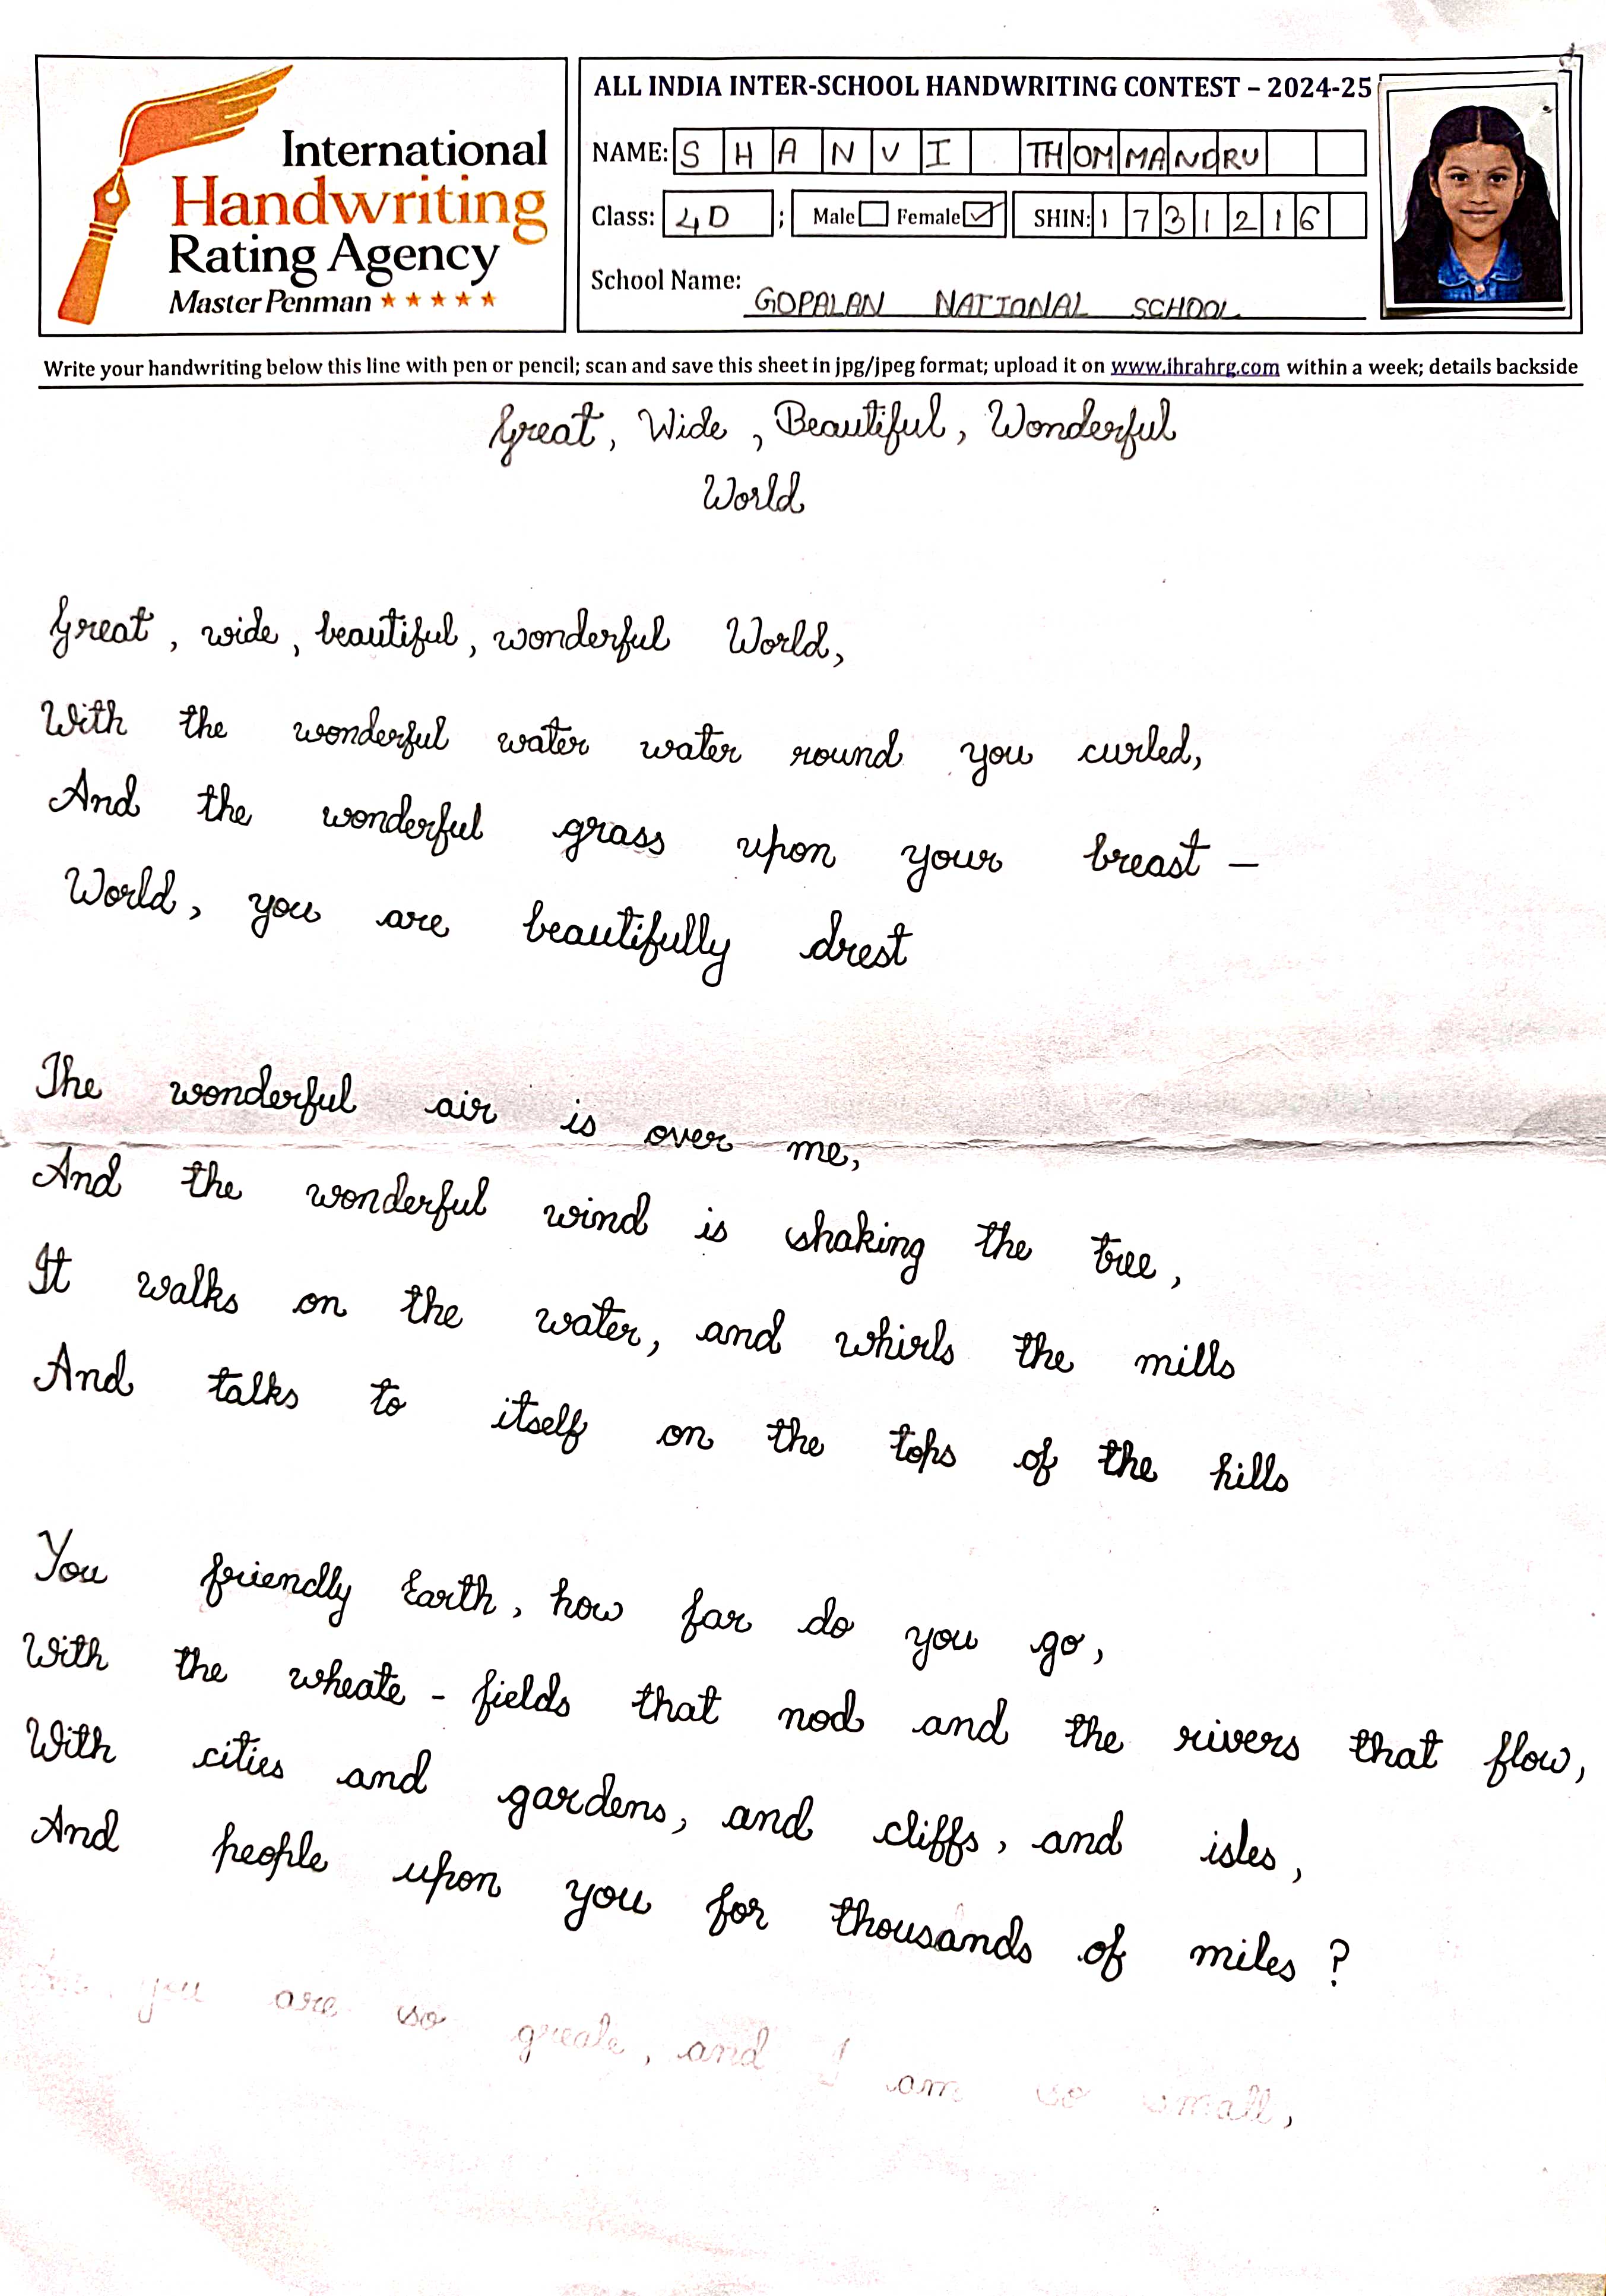 International
Handwriting
Rating Agency
Master Penman ★★★★★
ALL INDIA INTER-SCHOOL HANDWRITING CONTEST – 2024-25
NAME: SHANVI THOMMANDRU
Class: 4D ; Male Female ✓ SHIN: 1731216
School Name: GOPALAN NATIONAL SCHOOL
Write your handwriting below this line with pen or pencil; scan and save this sheet in jpg/jpeg format; upload it on www.ihrahrg.com within a week; details backside
Great, Wide, Beautiful, Wonderful
World
Great, wide, beautiful, wonderful World,
With the wonderful water water round you curled,
And the wonderful grass upon your breast –
World, you are beautifully drest
The wonderful air is over me,
And the wonderful wind is shaking the tree,
It walks on the water, and whirls the mills
And talks to itself on the tops of the hills
You friendly Earth, how far do you go,
With the wheate - fields that nod and the rivers that flow,
With cities and gardens, and cliffs, and isles,
And people upon you for thousands of miles?
you are so greate, and I am so small,